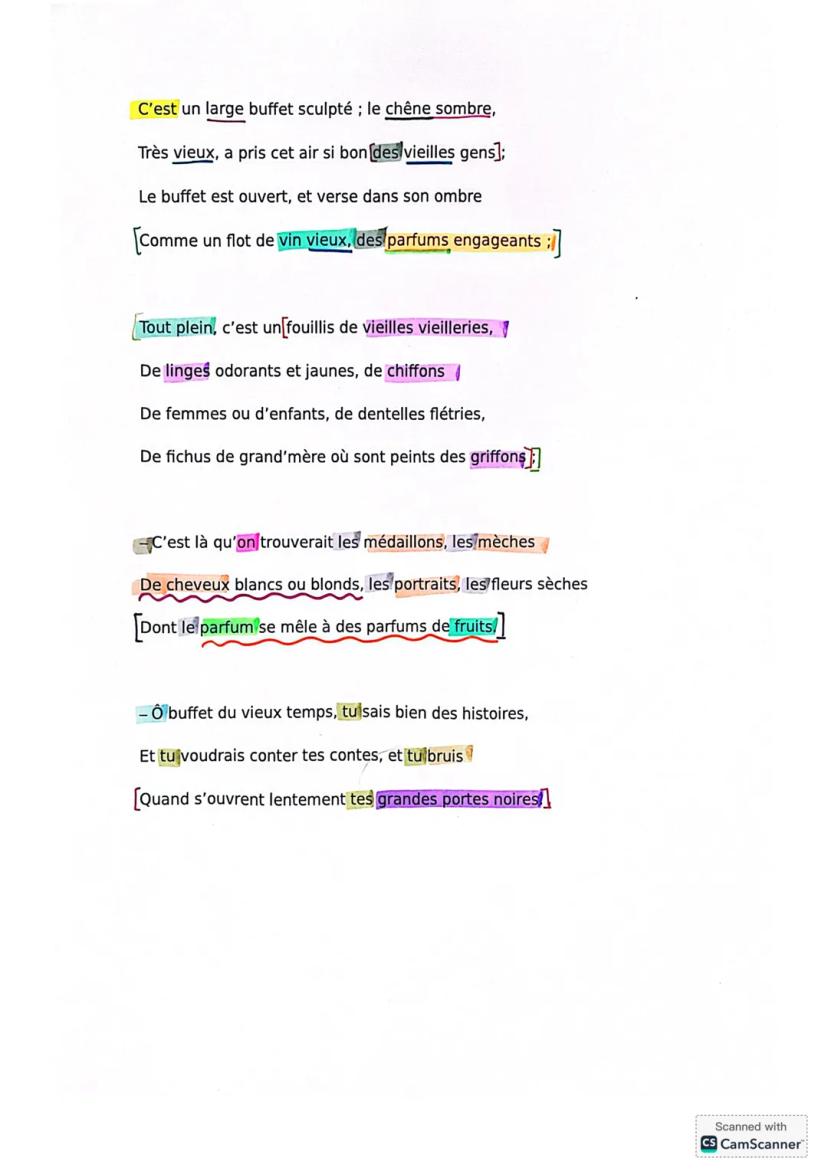 C’est un large buffet sculpté ; le chêne sombre,
Très vieux, a pris cet air si bon des vieilles gens ;
Le buffet est ouvert, et verse dans son ombre
Comme un flot de vin vieux, des parfums engageants ;
Tout plein, c’est un fouillis de vieilles vieilleries,
De linges odorants et jaunes, de chiffons
De femmes ou d’enfants, de dentelles flétries,
De fichus de grand’mère où sont peints des griffons ;
– C’est là qu’on trouverait les médaillons, les mèches
De cheveux blancs ou blonds, les portraits, les fleurs sèches
Dont le parfum se mêle à des parfums de fruits.
– Ô buffet du vieux temps, tu sais bien des histoires,
Et tu voudrais conter tes contes, et tu bruis
Quand s’ouvrent lentement tes grandes portes noires.
Scanned with
CS CamScanner